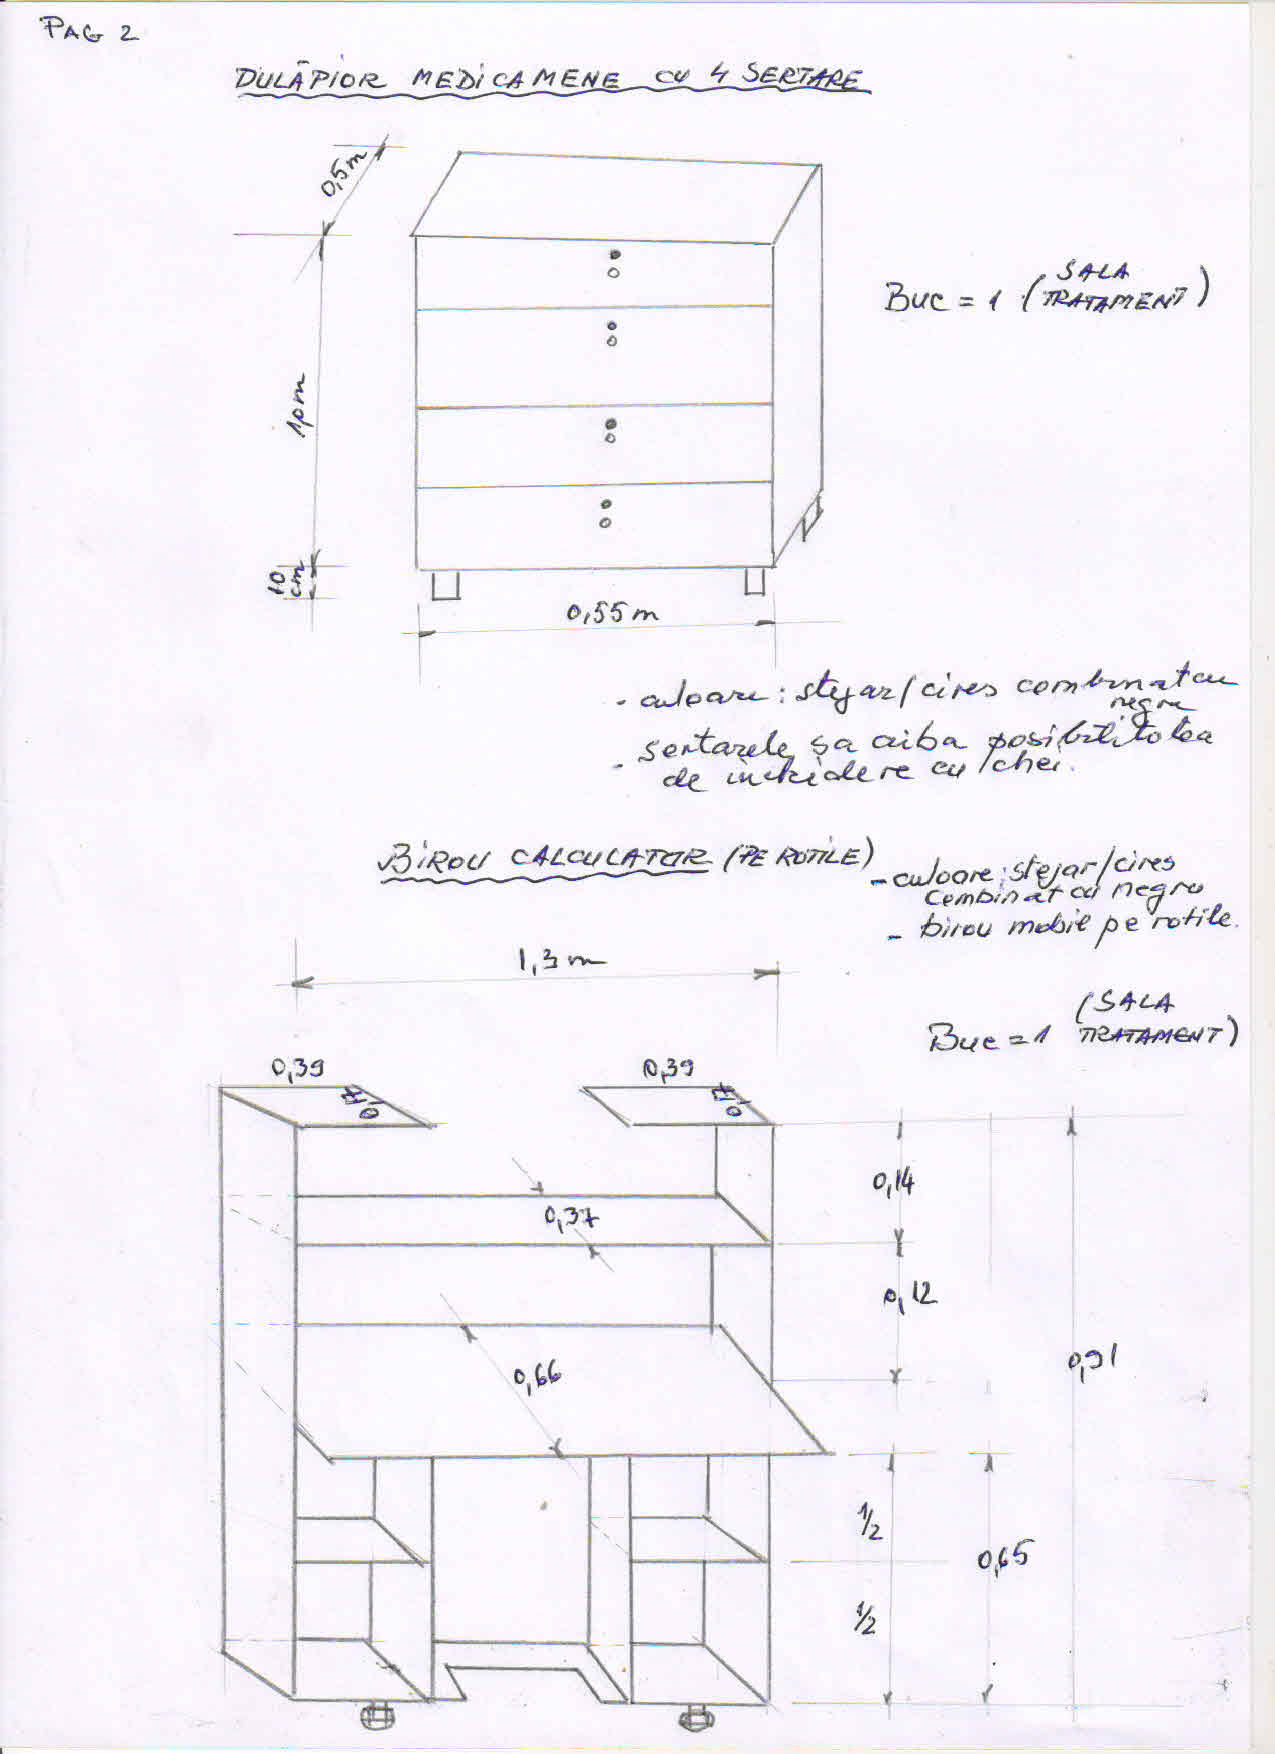 PAG 2
DULĂPIOR MEDICAMENE CU 4 SERTARE
0,5m
BUC = 1 (SALA
TRATAMENT)
1,0m
10
cm
0,55m
- culoare: stejar/cires combinat cu
negru
- sertarele sa aiba posibilitatea
de inchidere cu chei.
BIROU CALCULATOR (PE ROTILE)
- culoare: stejar/cires
combinat cu negru
- birou mobil pe rotile.
1,3m
BUC = 1 (SALA
TRATAMENT)
0,39
0,39
0,17
0,17
0,14
0,37
0,12
0,91
0,66
1/2
0,65
1/2